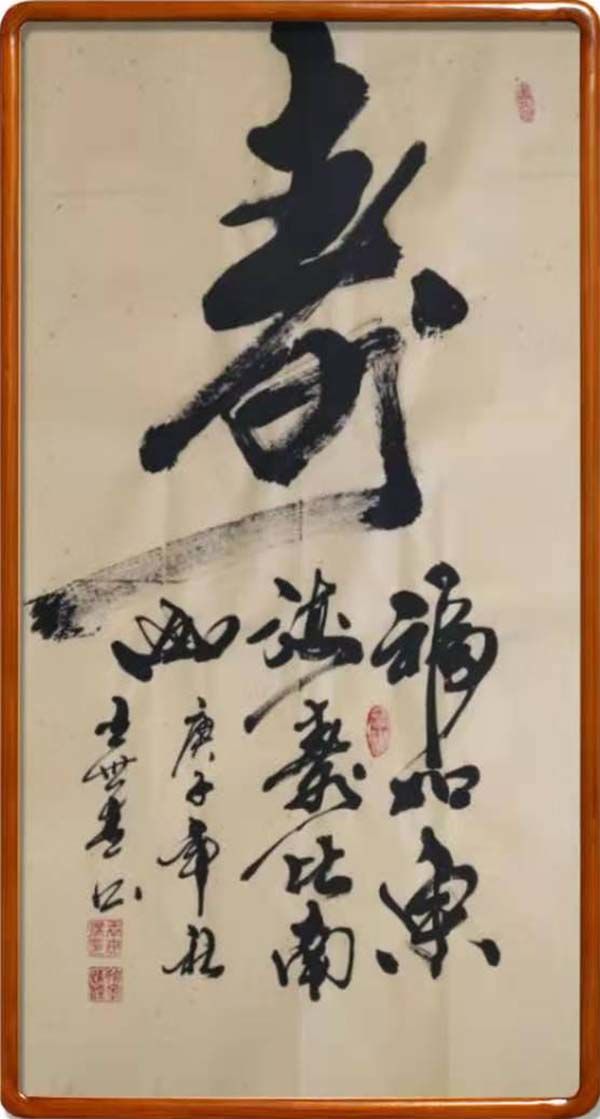 寿
福如東
海寿比南
山
庚子年秋
王世春书